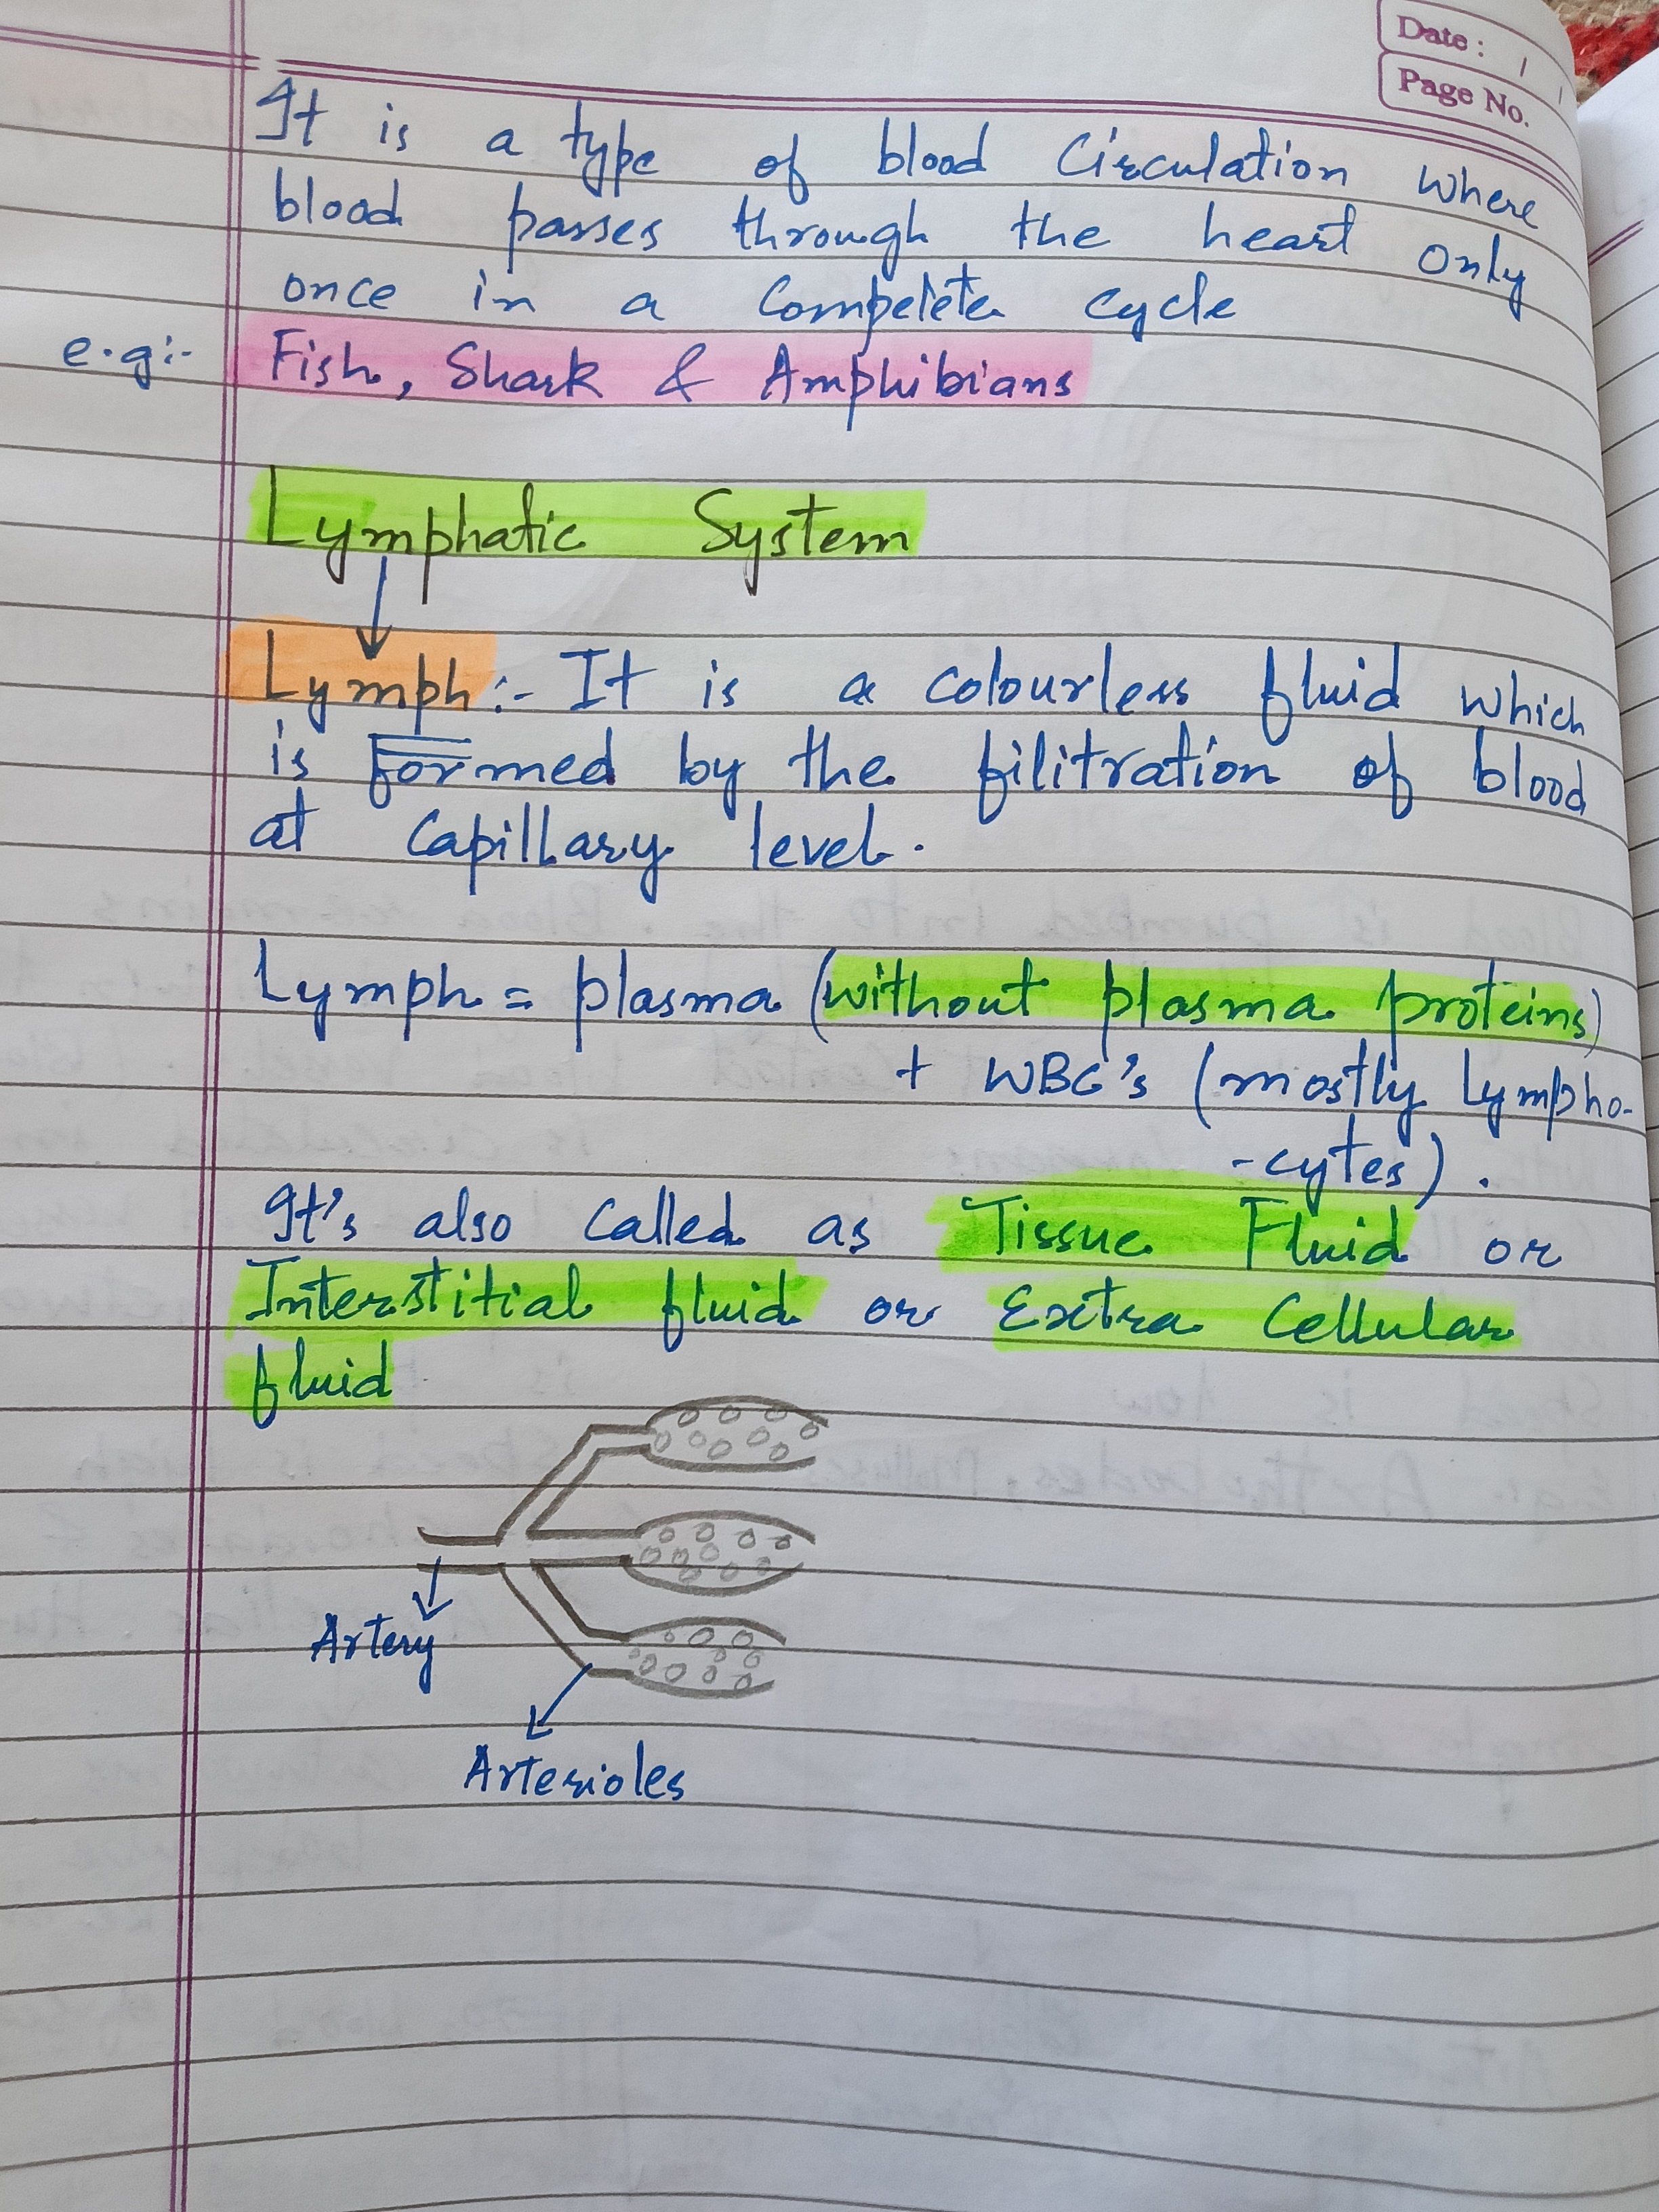 Date :
Page No.
It is a type of blood Circulation where
blood passes through the heart only
once in a Compelete cycle
e.g:- Fish, Shark & Amphibians
Lymphatic System
Lymph :- It is a colourless fluid which
is formed by the filitration of blood
at Capillary level.
Lymph = plasma (without plasma proteins)
+ WBC's (mostly Lympho-
-cytes).
It's also Called as Tissue Fluid or
Interstitial fluid or Extra Cellular
fluid
Artery
Arterioles